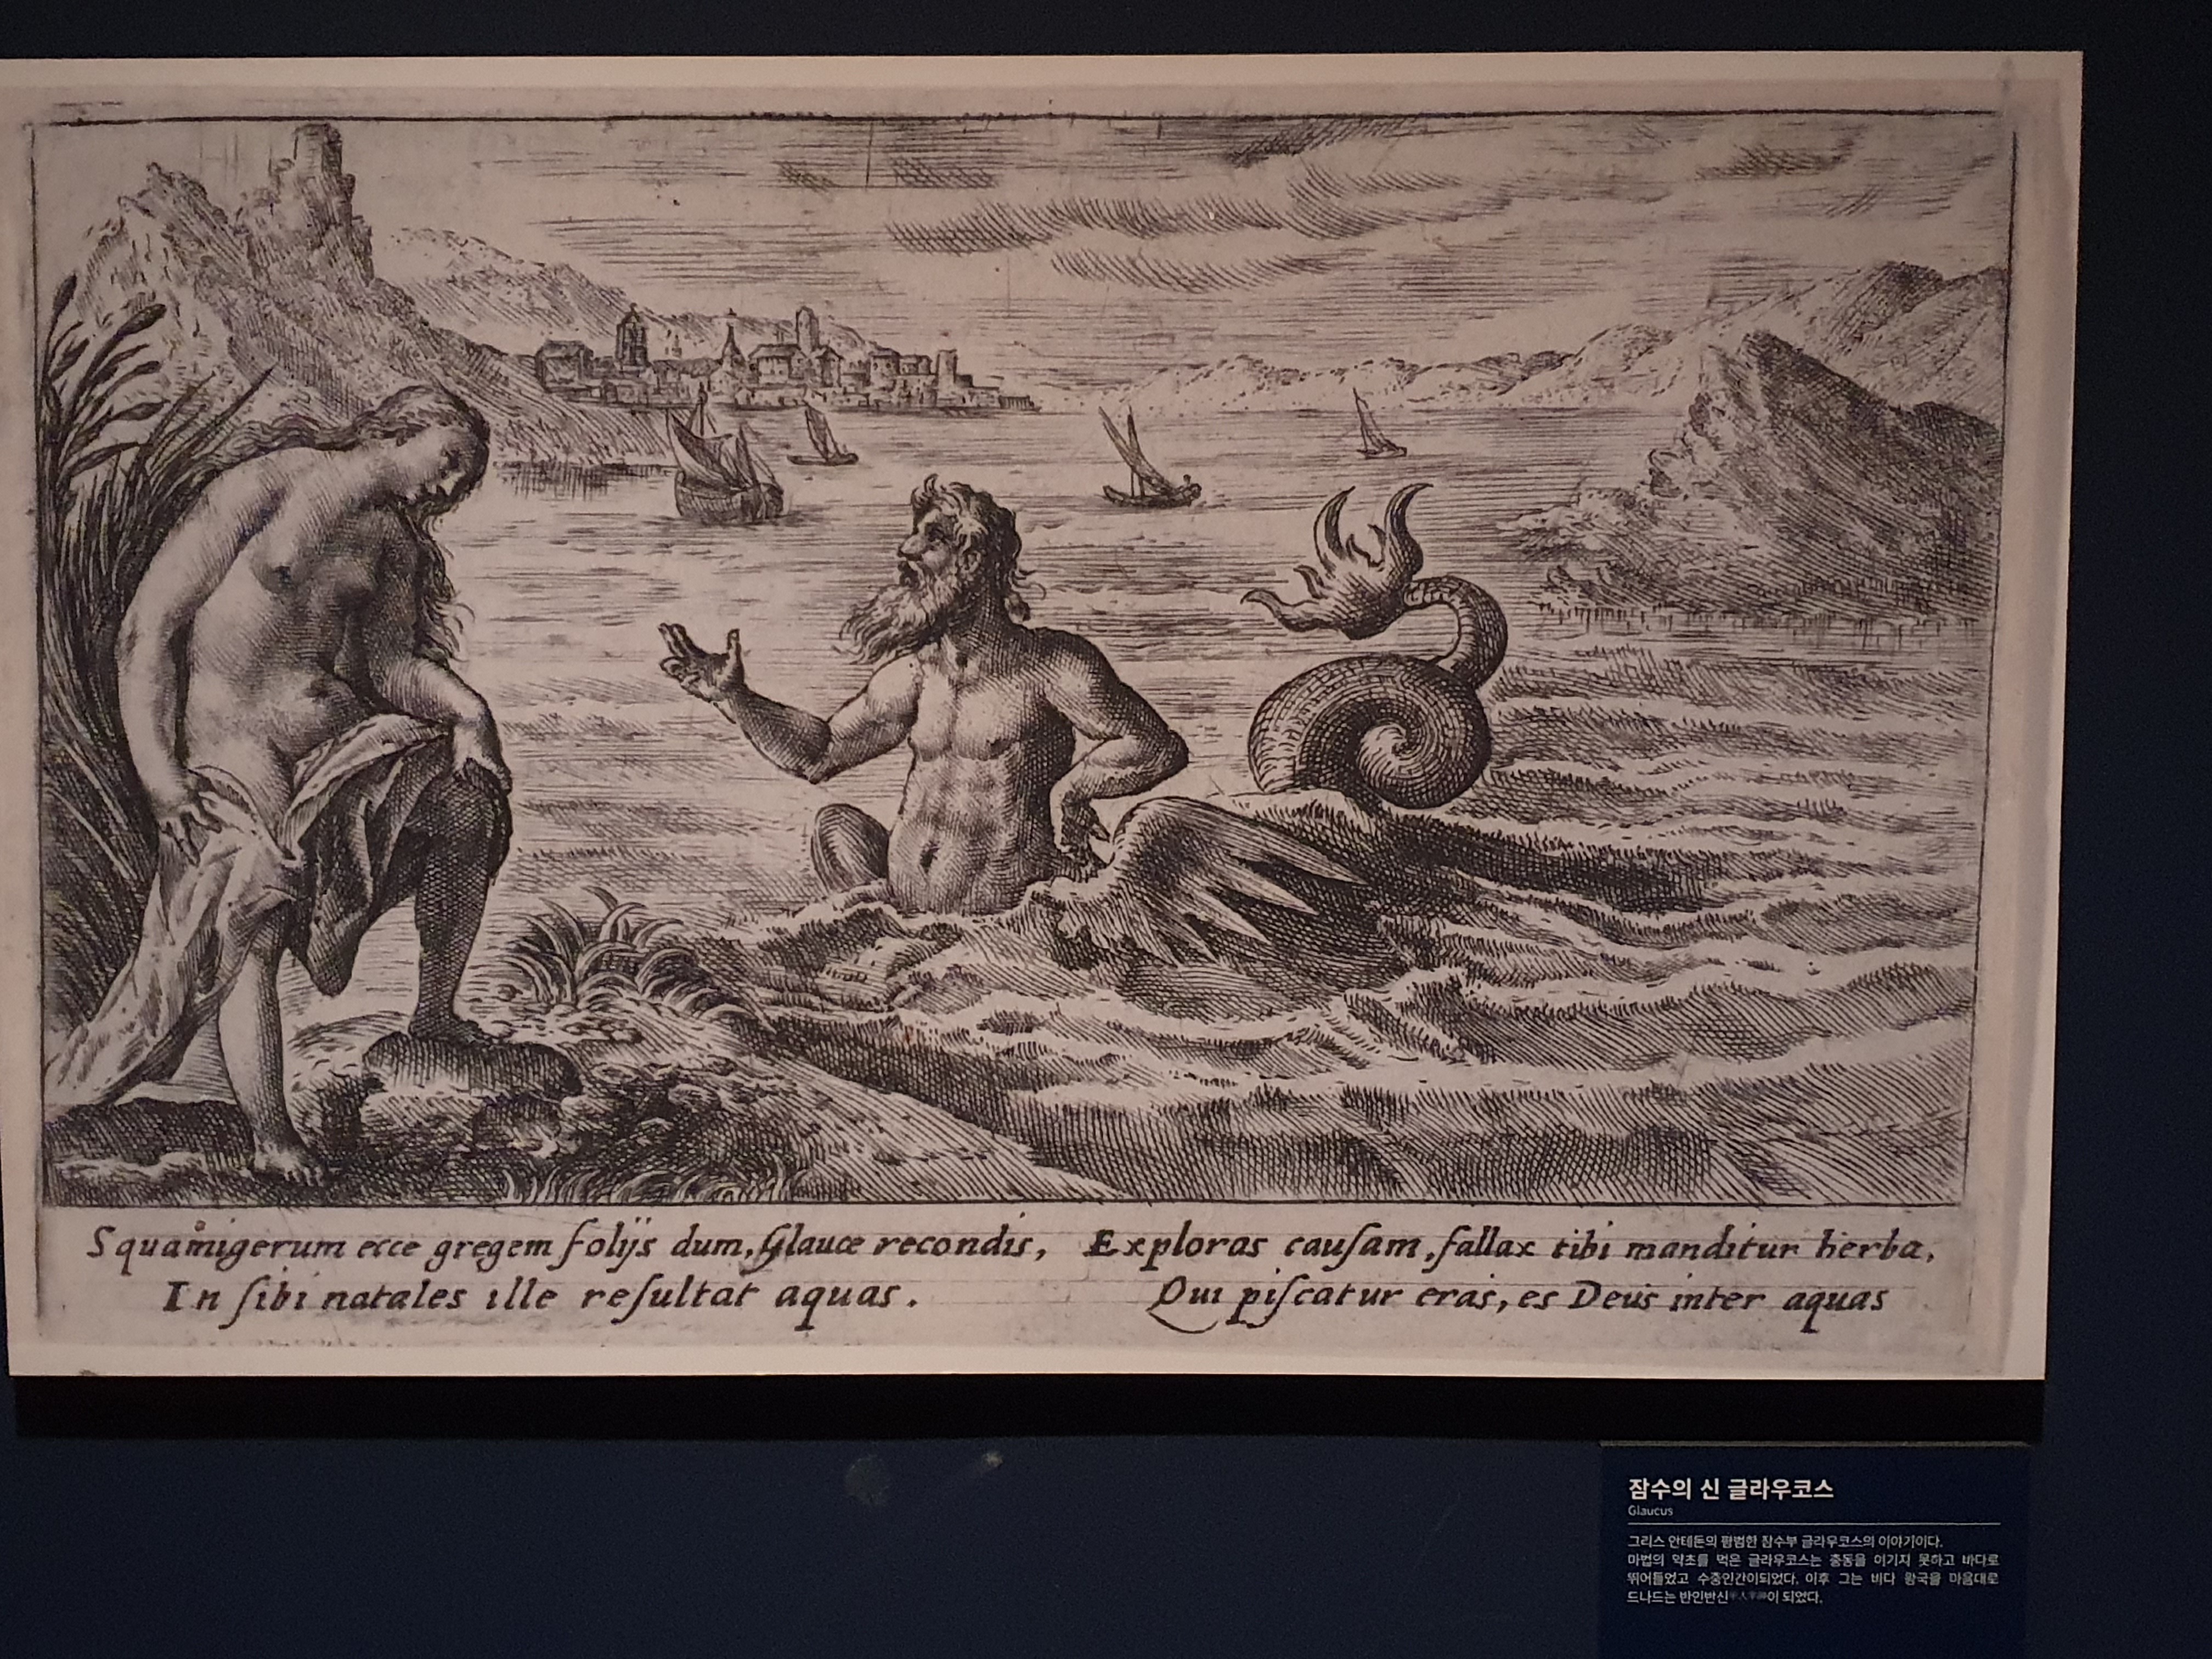 Squam̊igerum ecce gregem folijs dum, Glauce recondis,
In ſibi natales ille reſultat aquas.
Exploras cauſam, fallax tibi manditur herba,
Qui piſcatur eras, es Deus inter aquas
잠수의 신 글라우코스
Glaucus
그리스 안테돈의 평범한 잠수부 글라우코스의 이야기이다.
마법의 약초를 먹은 글라우코스는 충동을 이기지 못하고 바다로
뛰어들었고 수중인간이되었다. 이후 그는 바다 왕국을 마음대로
드나드는 반인반신이 되었다.